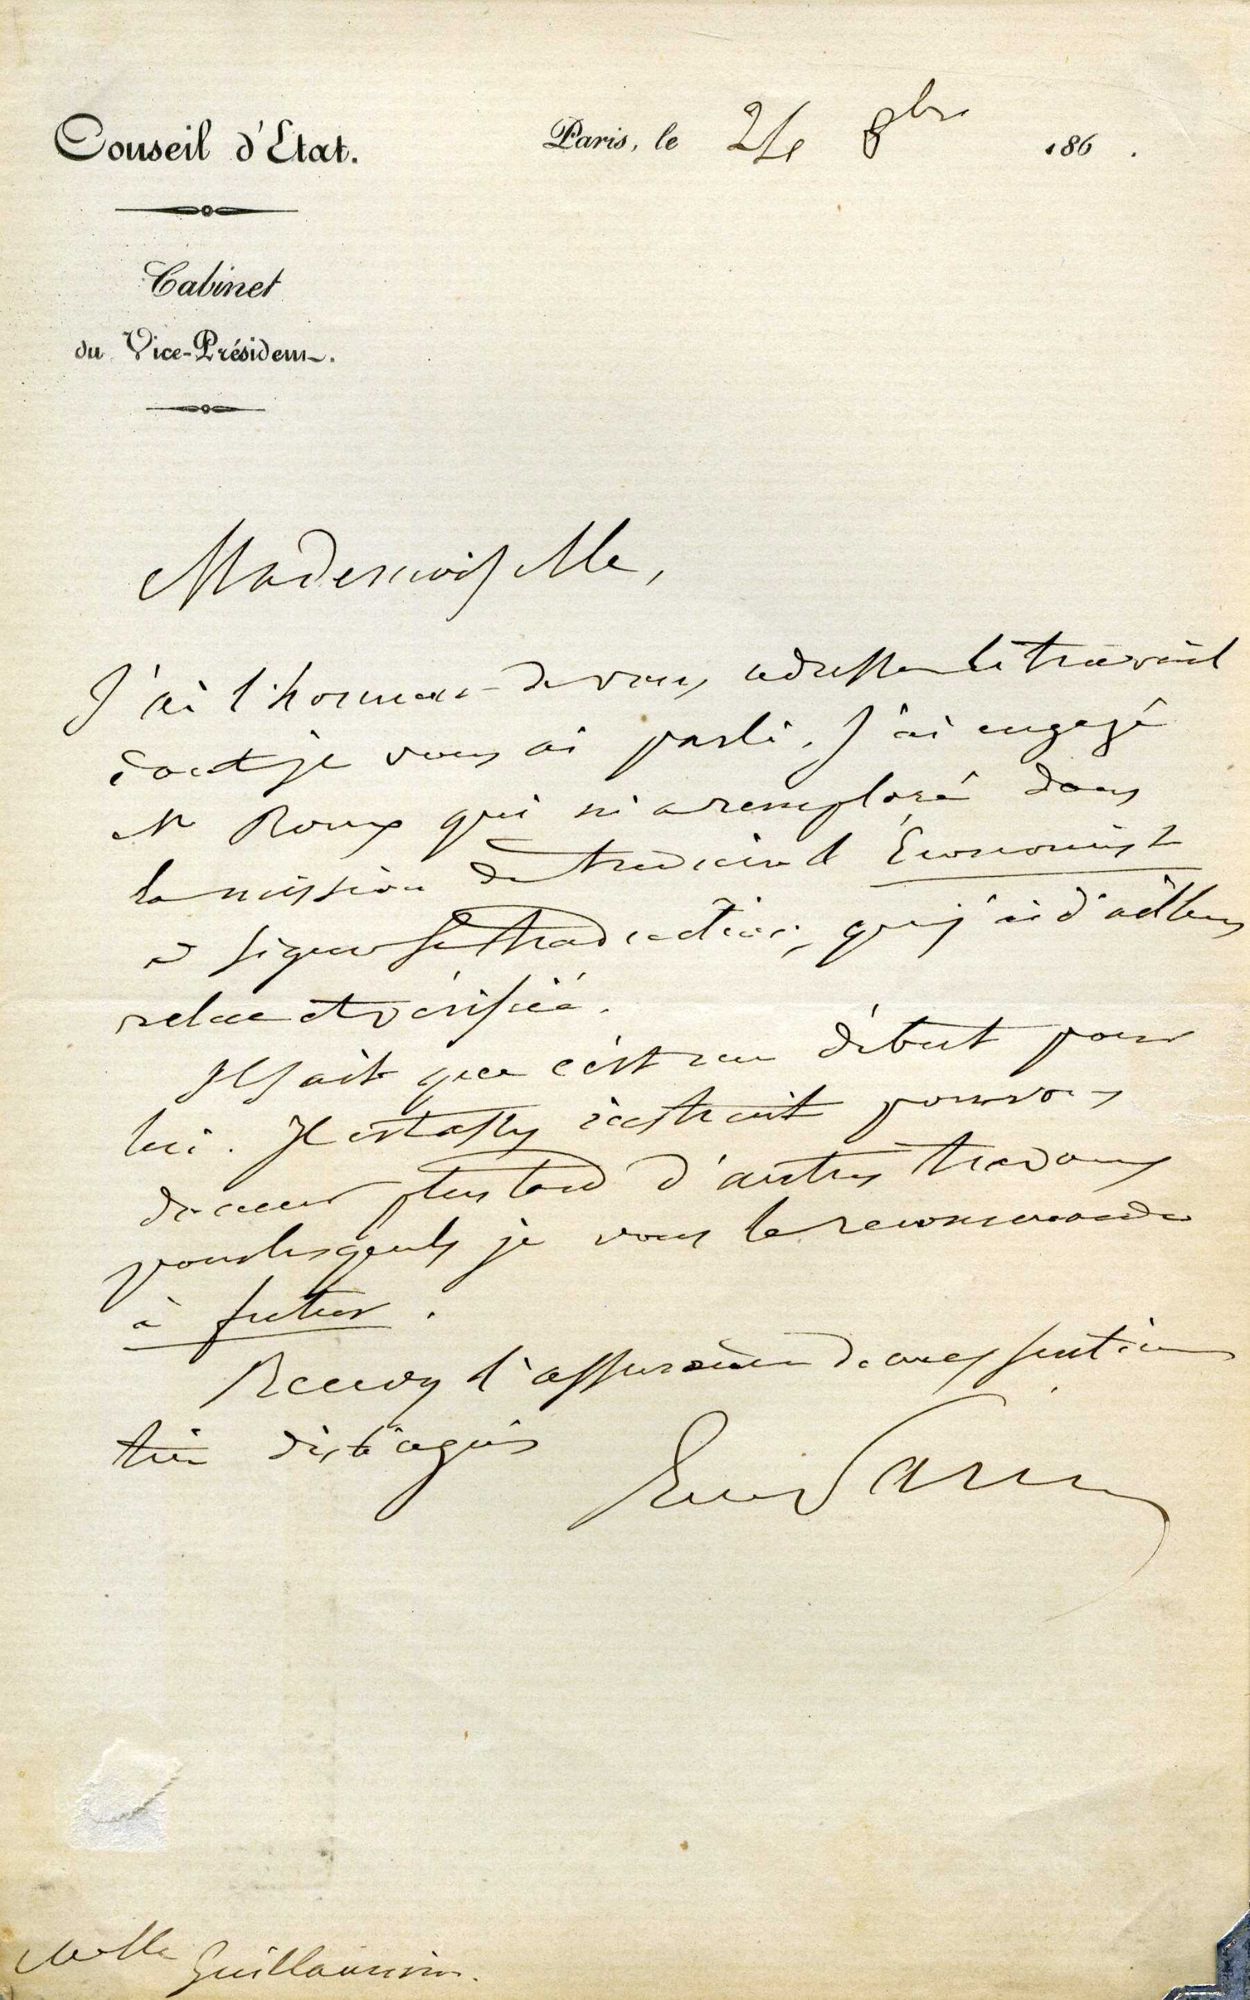 Conseil d'Etat.
Paris, le 24 8bre 186 .
Cabinet
du Vice-Président.
Mademoiselle,
J'ai l'honneur de vous adresser le travail
dont je vous ai parlé. J'ai engagé
Mr Roux qui m'a remplacé dans
la mission de traduire l'Economist
à signer sa traduction, que j'ai d'ailleurs
relue et vérifiée.
Il sait que c'est un début pour
lui. Il est assez instruit pour vous
donner plus tard d'autres travaux
pour lesquels je vous le recommande
à futur.
Recevez l'assurance de mes sentimens
très distingués
Melle Guillaumin.